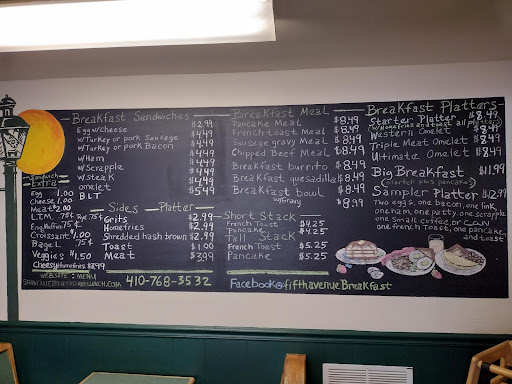 Breakfast Sandwiches
Egg w/cheese $2.99
w/Turkey or pork Sausage $4.49
w/Turkey or pork Bacon $4.49
w/Ham $4.49
w/Scrapple $4.49
w/Steak $4.49
omelet $4.49
BLT $5.49
Sandwich
Extra
Egg 1.00
Cheese 1.00
Meat 2.00
L.T.M. .75¢ Rye .75¢
Eng. Muffin .75¢
Croissant 1.00
Bagel .75¢
Veggies $1.50
Cheesy Homefries $3.99
Sides Platter
Grits $2.99
Homefries $2.99
Shredded hash brown $2.99
Toast $1.00
Meat $3.99
WEBSITE : MENU
410-768-3532
Breakfast Meal
Pancake Meal $8.49
French toast Meal $8.49
Sausage gravy Meal $8.49
Chipped Beef Meal $8.49
Breakfast burrito $8.49
Breakfast quesadilla $8.49
Breakfast bowl $8.99
w/Gravy
Short Stack
French Toast $4.25
Pancake $4.25
Tall Stack
French Toast $5.25
Pancake $5.25
Facebook@fifthavenueBreakfast
Breakfast Platters
Starter Platter $8.49
(w/Homefries and toast all platters)
Western Omelet $8.49
Triple Meat Omelet $8.49
Ultimate Omelet $8.49
Big Breakfast $11.99
(starter plus pancakes)
Sampler Platter $12.99
Two eggs, one bacon, one link,
one ham, one patty, one scrapple,
one small coffee, or C.C.N.,
one french toast, one pancake,
and toast